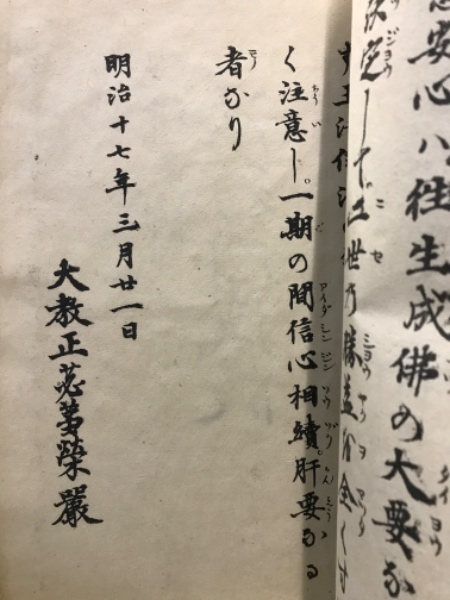 安心ハ往生成佛の大要な
決定して二世乃勝益を全くす
く注意し。一期の間信心相續。肝要なる
者なり
明治十七年三月廿一日
大教正苾蒭榮嚴